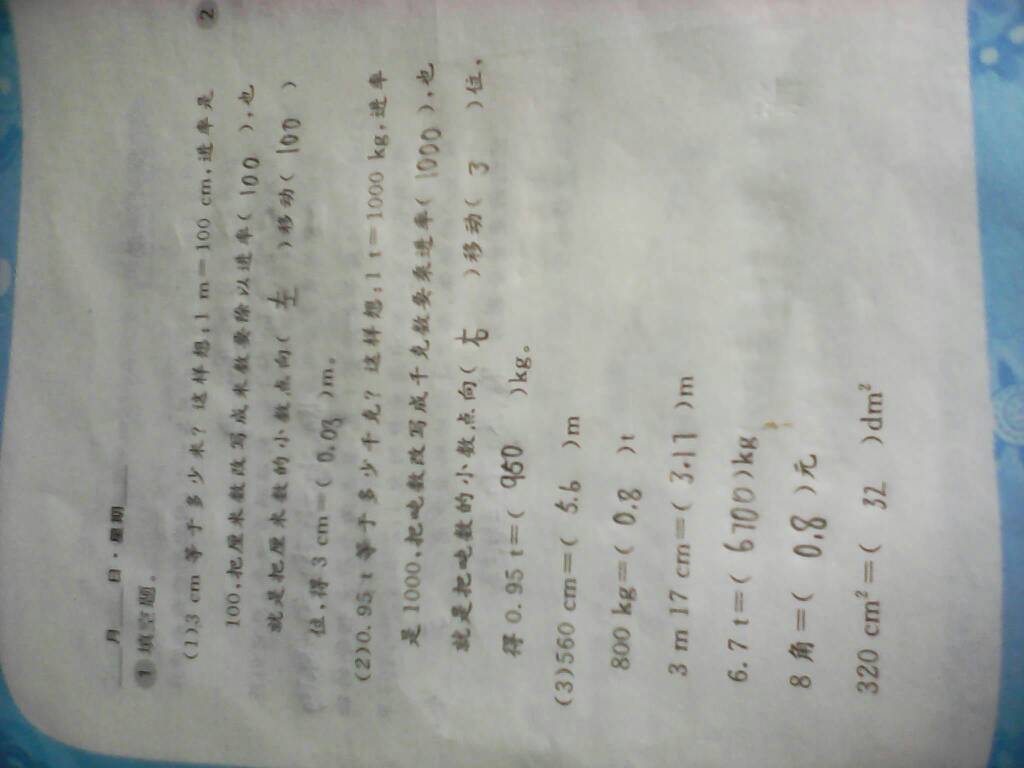 ____月____日·星期____
1 填空题。
(1)3 cm 等于多少米?这样想:1 m=100 cm,进率是
100,把厘米数改写成米数要除以进率( 100 ),也
就是把厘米数的小数点向( 左 )移动( 100 )
位,得 3 cm=( 0.03 )m。
(2)0.95 t 等于多少千克?这样想:1 t=1000 kg,进率
是 1000,把吨数改写成千克数要乘进率( 1000 ),也
就是把吨数的小数点向( 右 )移动( 3 )位,
得 0.95 t=( 950 )kg。
(3)560 cm=( 5.6 )m
800 kg=( 0.8 )t
3 m 17 cm=( 3.17 )m
6.7 t=( 6700 )kg
8 角=( 0.8 )元
320 cm²=( 32 )dm²
2